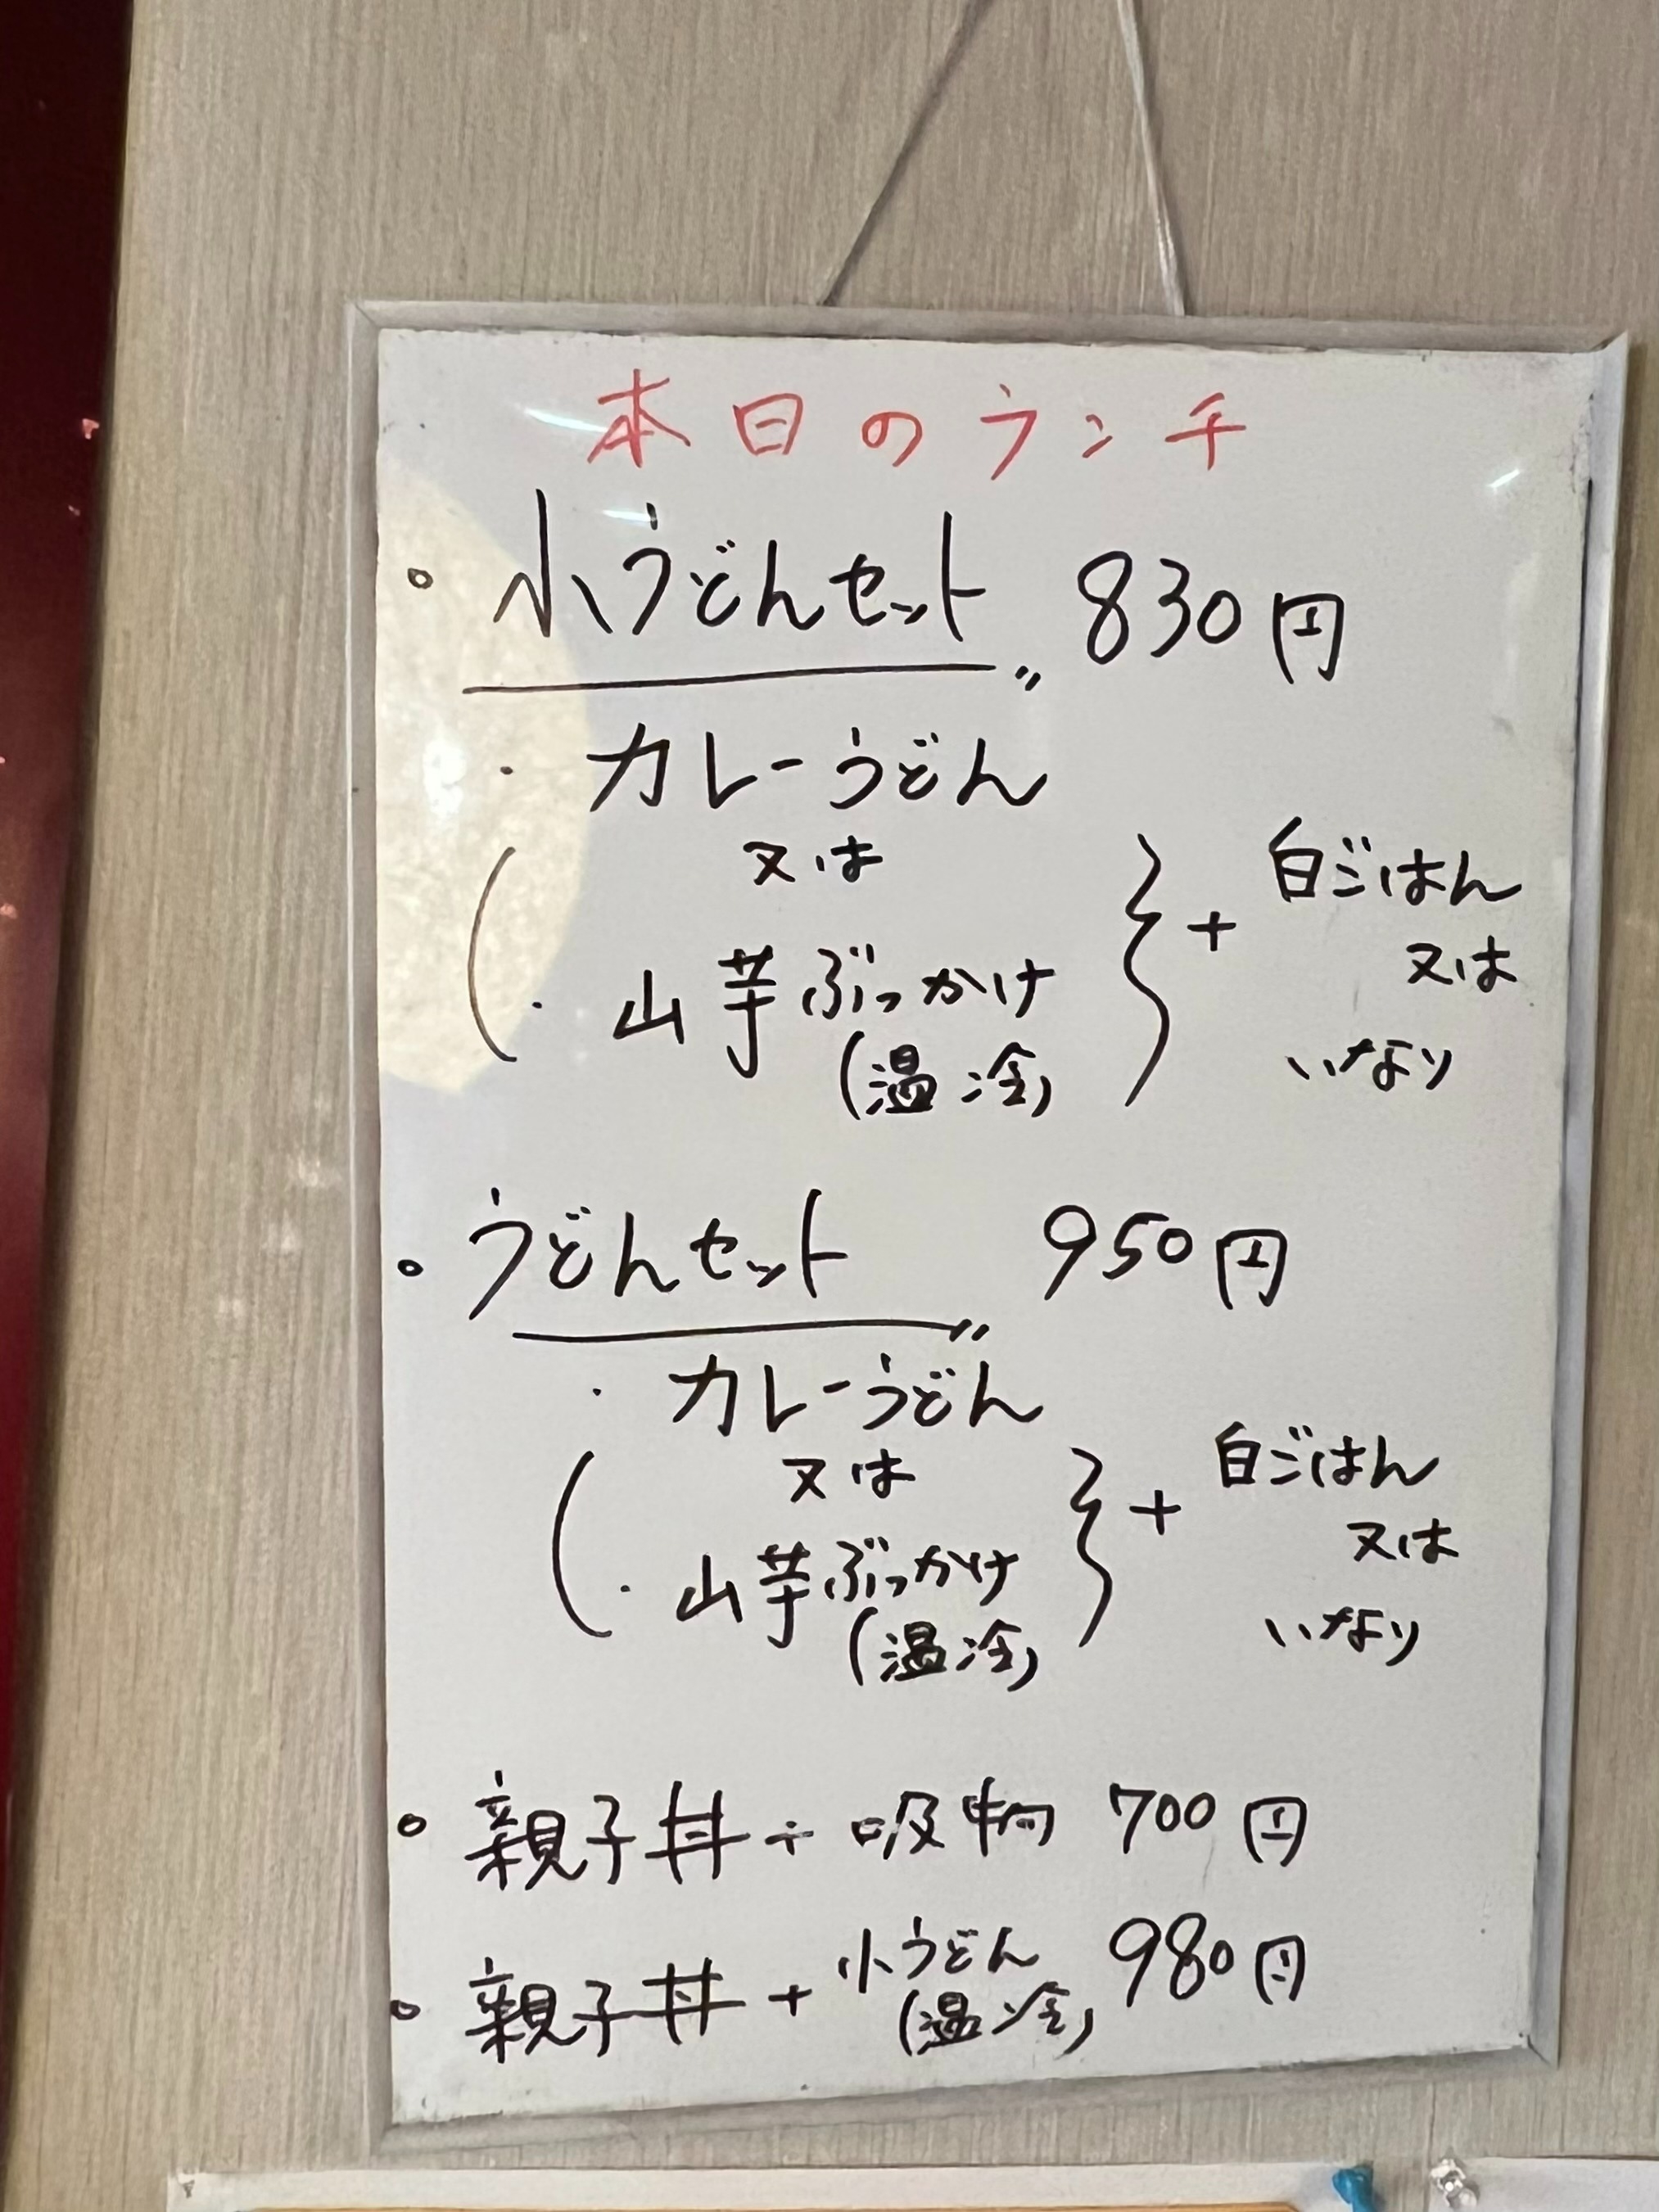 本日のランチ
。小うどんセット 830円
・カレーうどん
又は
・山芋ぶっかけ
(温冷)
} + 白ごはん
又は
いなり
。うどんセット 950円
・カレーうどん
又は
・山芋ぶっかけ
(温冷)
} + 白ごはん
又は
いなり
。親子丼+吸物 700円
。親子丼+小うどん 980円
(温冷)